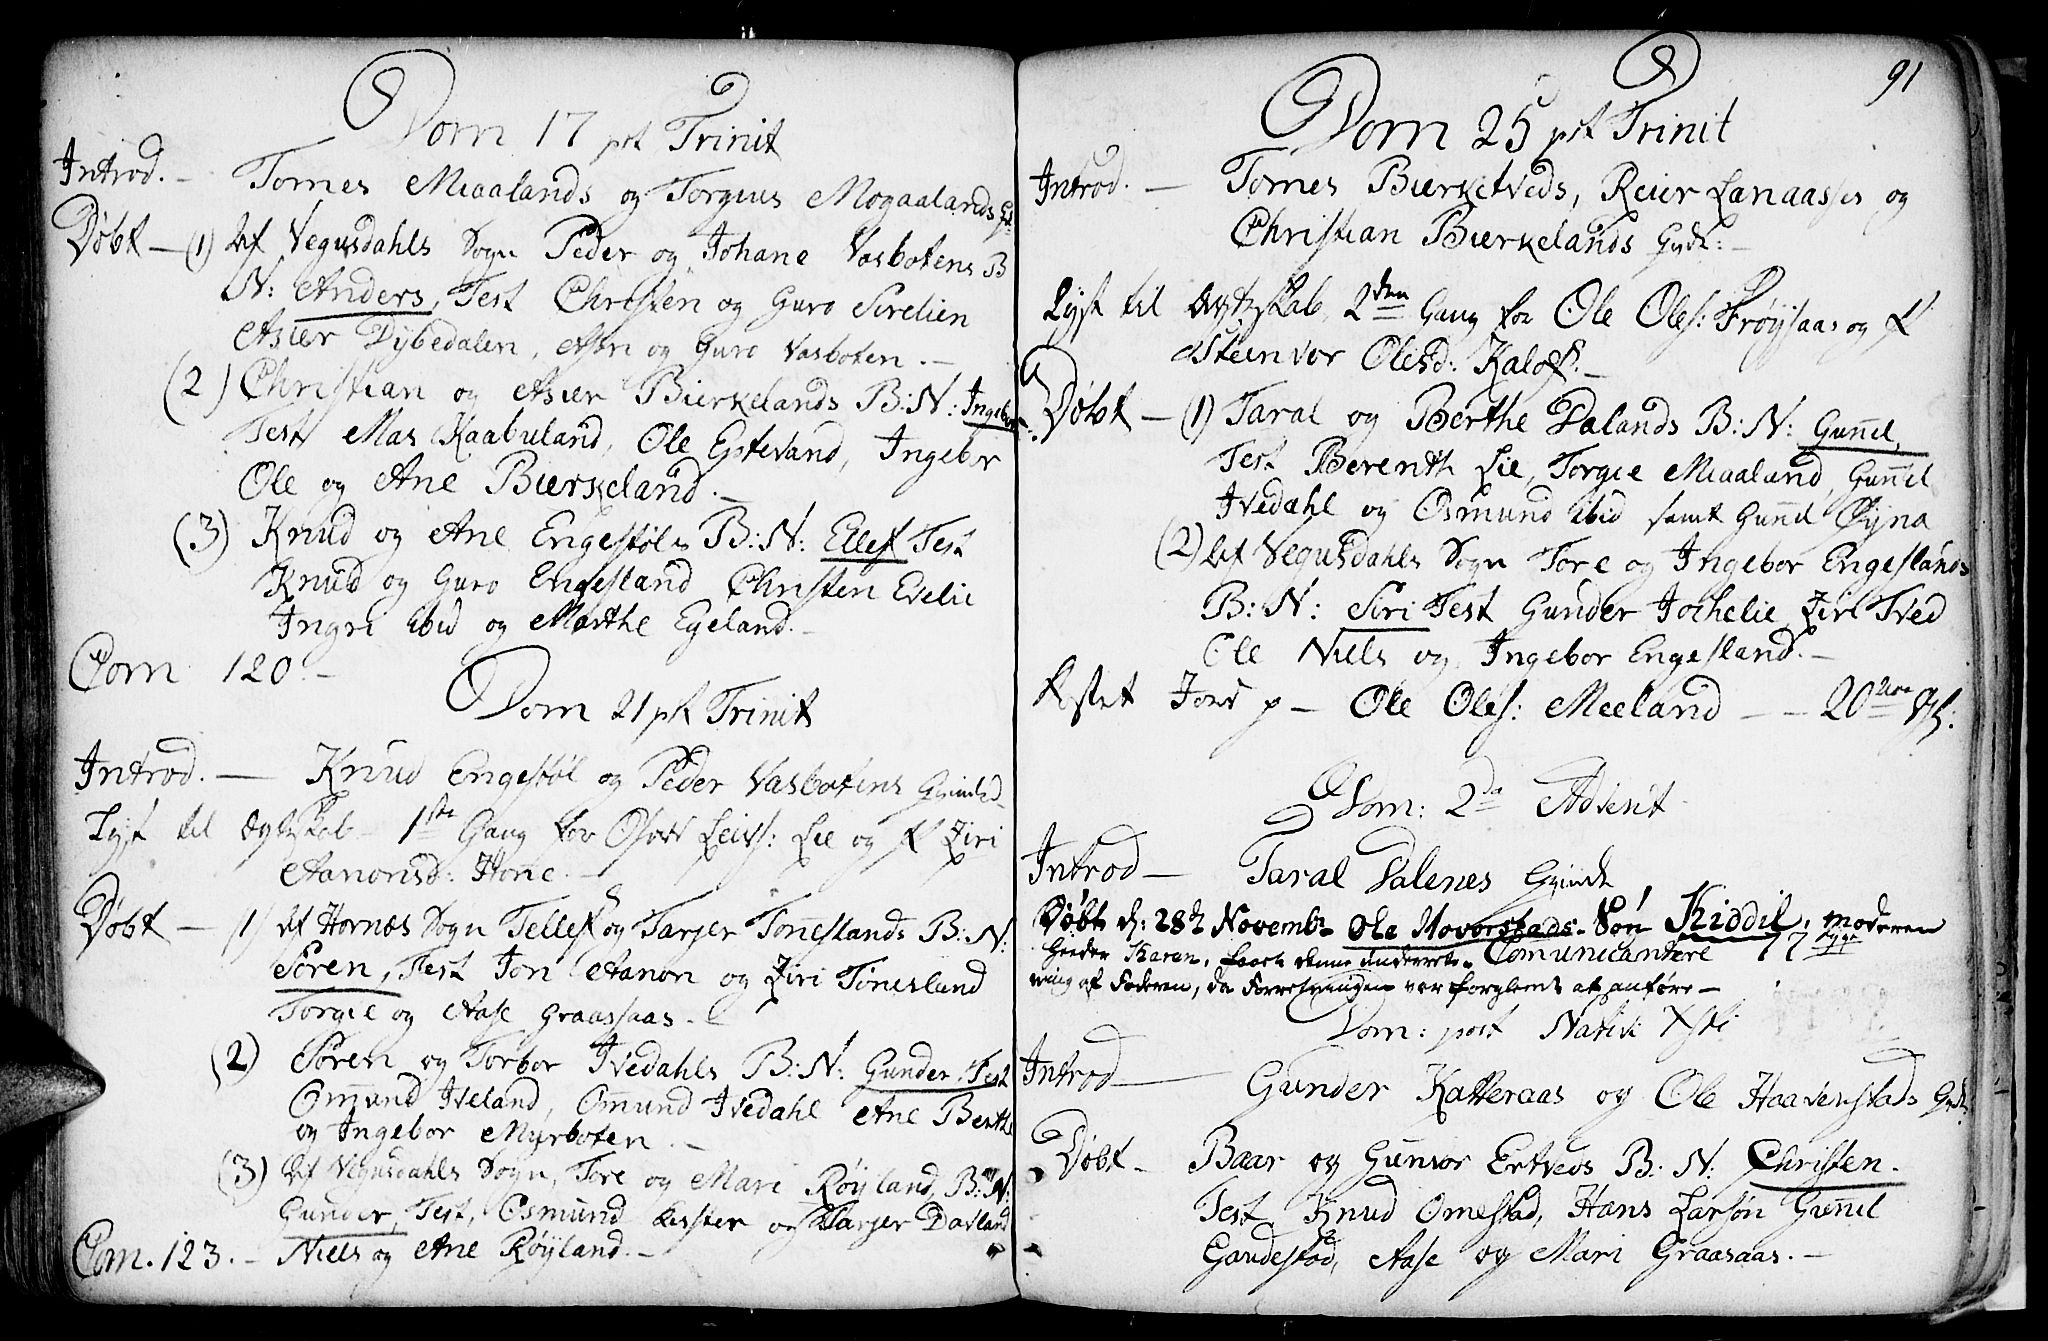 Dom 17 pst Trinit
Introd. - Tomes Miaalands og Torgius Mogaalands
Døbt - (1) Af Vegusdahls Sogn Peder og Johane Vasbotens B
N: Anders, Test Christen og Guro Sirelien
Asier Dybedalen, og Guro Vasboten. -
(2) Christian og Asier Bierkelands B:N: Ingebor
Test Mas Kaabuland, Ole Egtevand, Ingebor
Ole og Ane Bierkeland. -
(3) Knud og Ane Engestøls B:N: Ellef Test
Knud og Guro Engesland Christen Evelie
Ingri ibid og Marthe Egeland. -
Com 120. -
Dom 21 pst Trinit
Introd. - Knud Engestøl og Peder Vasbotens Qvinded
Lyst til Ægteskab 1ste Gang for Leivs: Lie og Ziri
Aanonsd: Hone. -
Døbt - 1) Af Hornæs Sogn Tellef og Tarjer Tønneslands B:N:
Søren, Test Jon Aanon og Ziri Tønesland
Torgie og Aase Graassaas. -
(2) Søren og Torbor Ivedahls B:N: Gunder. Test
Omund Iveland, Omund Ivedahl Ane Berthe
og Ingebor Myrboten. -
(3) Af Vegusdahls Sogn, Tore og Mari Røyland, B:N:
Gunder, Test, Osmund og Tarjer Dovland
Com. 123. - Niels og Ane Røyland. -
91
Dom 25 pst Trinit
Introd. - Tomes Bierketveds, Reier Lanaasses og
Christian Bierkelands Qvdr: -
Lyst til Ægteskab 2den Gang for Ole Oles: Frøysaas og
Steenvor Olesd: -
Døbt - (1) Taral og Berthe Dalands B:N: Gunnel,
Test Berenth Lie, Torgie Miaaland, Gunnel
Ivedahl og Osmund ibid samt Gunnel Øyna
(2) Af Vegusdahls Sogn Tore og Ingebor Engeslands
B:N: Siri Test Gunder Jochelie, Ziri Tved
Ole Niels og Ingebor Engesland. -
Kastet Jord p - Ole Oles: Meeland - - 20
Dom: 2da Advent
Introd - Taral Dalenes Qvinde
Døbt d: 28de Novembr Ole Hovorstads Søn Kiddil, moderen
heeder Karan, faaet denne underret-
ning af Faderen, da Forretningen var forglemt at anføre -
Comunicantere 77
Dom: post Nativi Xsti
Introd - Gunder Katteraas og Ole Haaverstads Qvdr
Døbt - Baar og Gunvor Ertveds B:N: Christen -
Test Knud Omestad, Hans Larsøn Gunnel
Gaudestad, Aase og Mari Graasaas. -